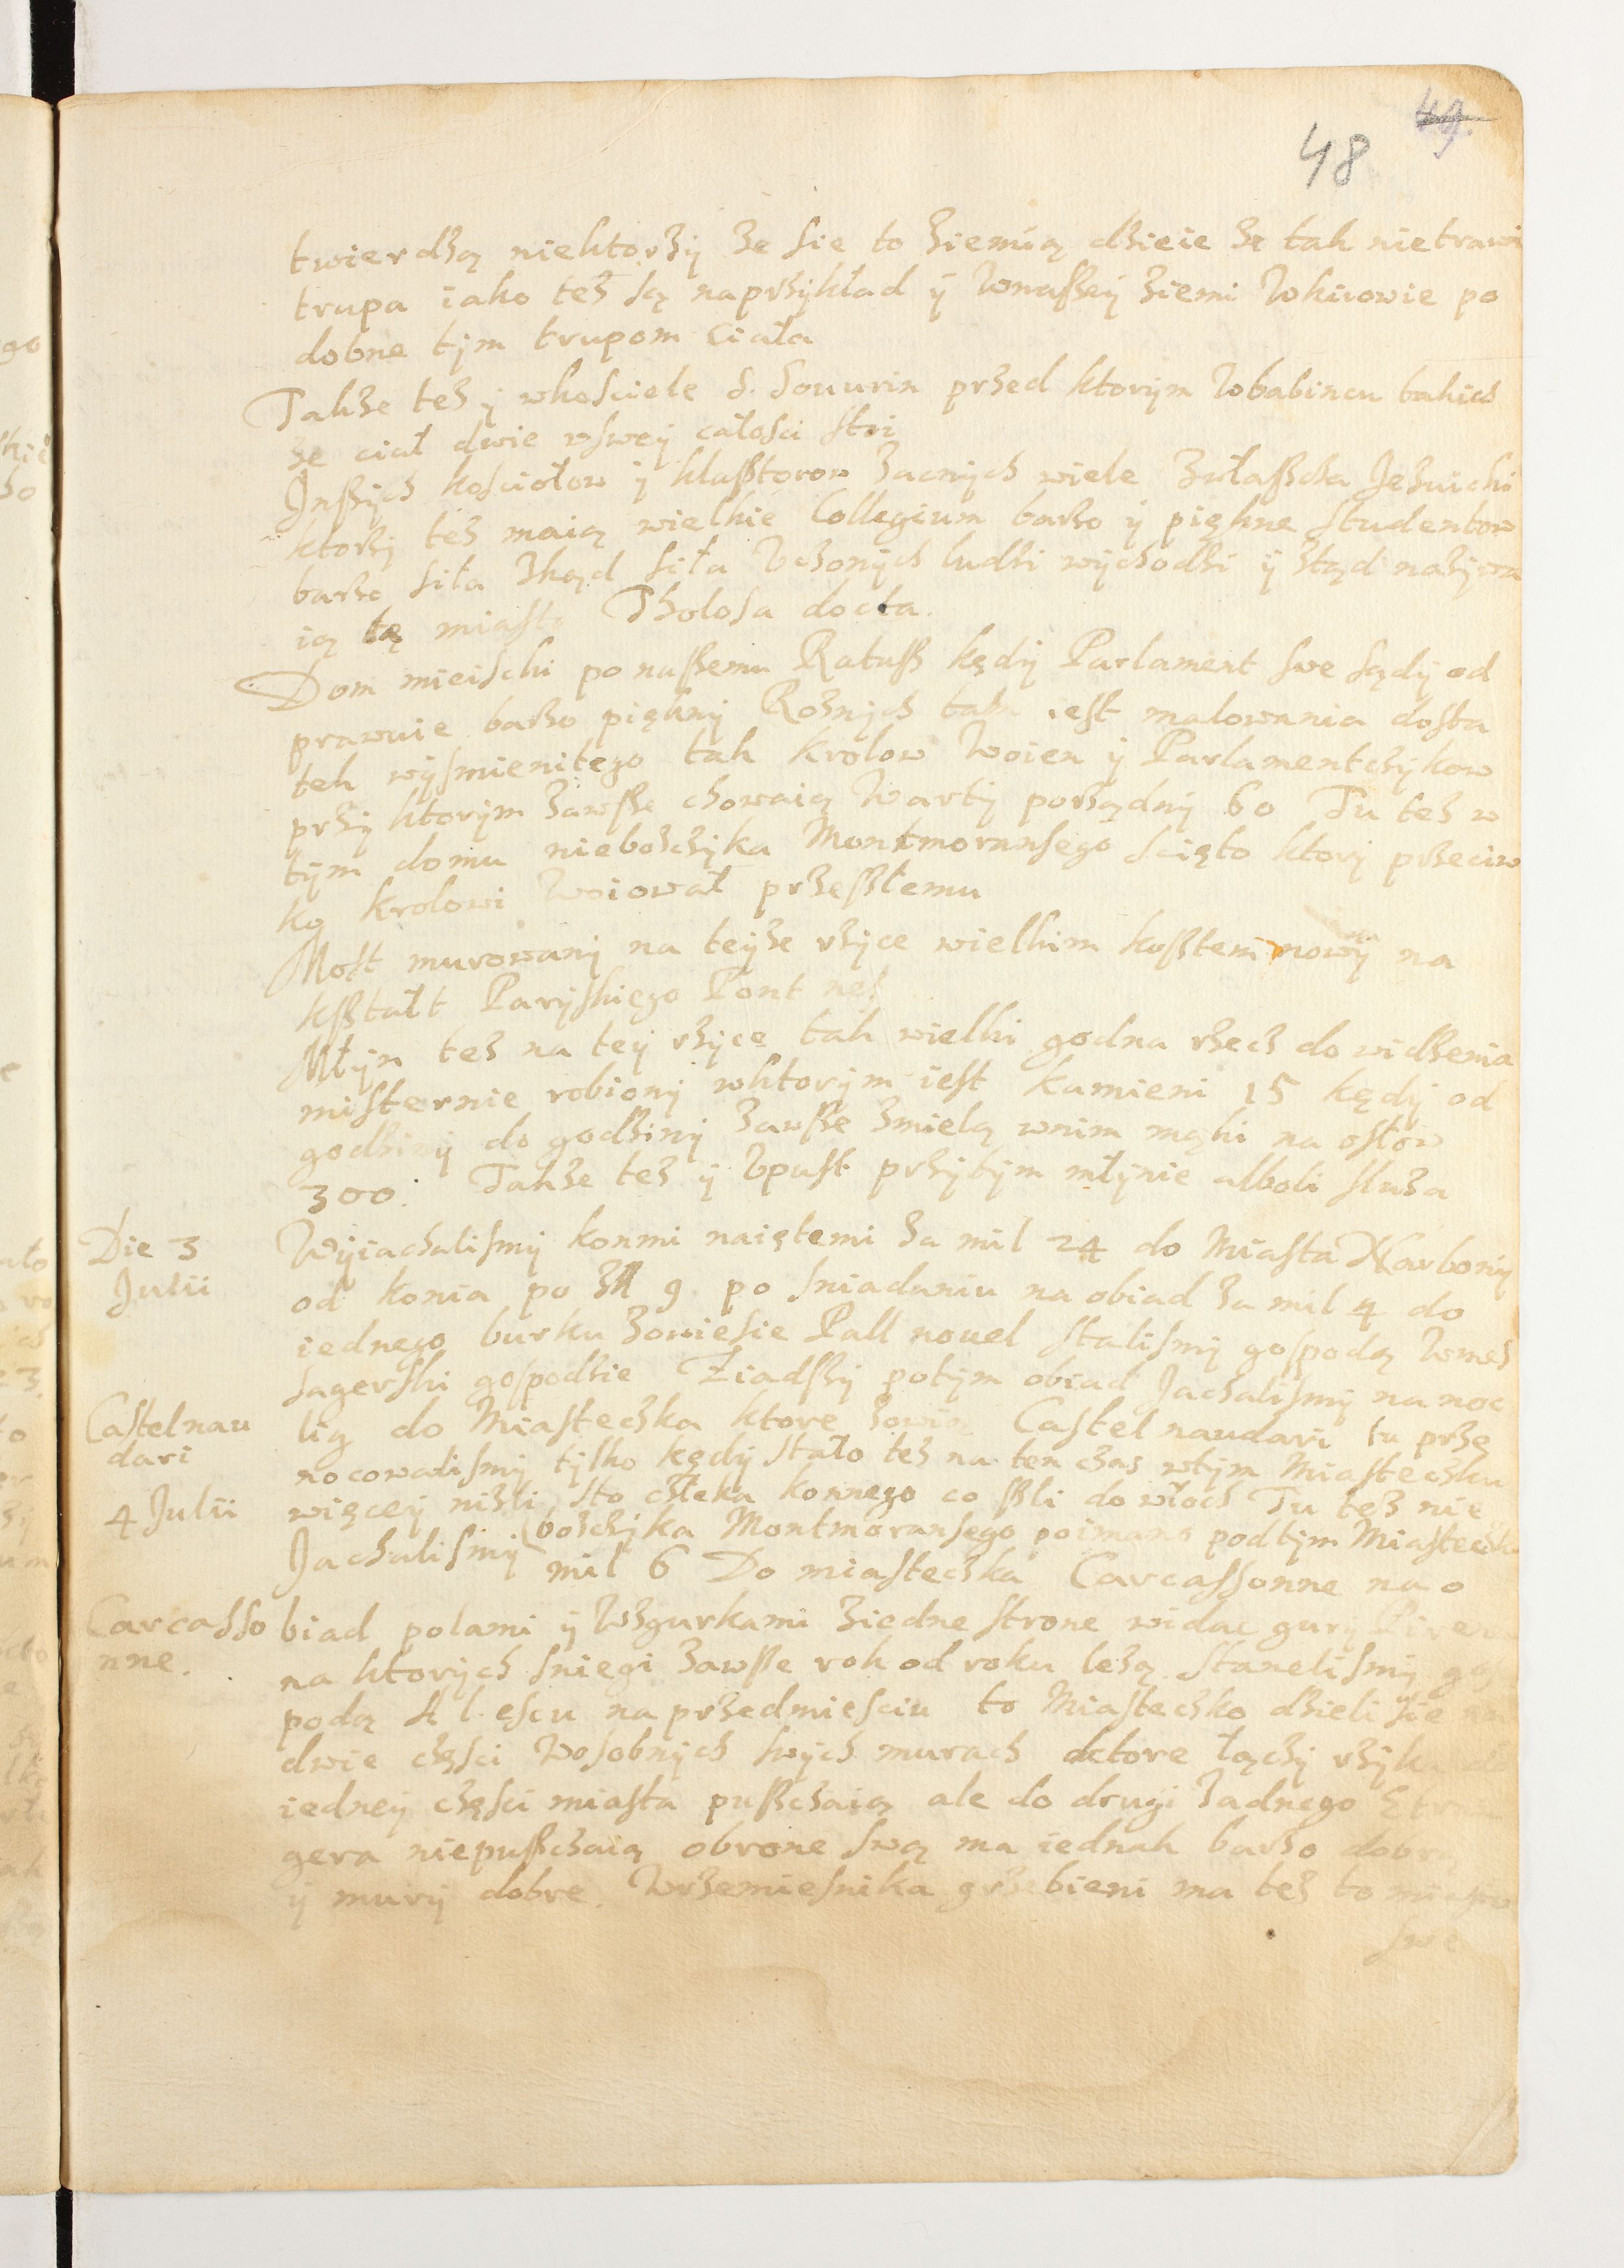 49.
48
twierdzą niektorzÿ ze sie to ziemią dzieie ze tak nietrawi
trupa iako tez są naprzÿkład ÿ wnaszeÿ ziemi wkiiowie po
dobne tÿm trupom ciała
Takze tez ÿ wkosciele S. Souurin przed ktorÿm wbabincu takich
ze ciał dwie wsweÿ całosci stoi
Inszÿch kosciołow ÿ klasztorow zacnÿch wiele zwłaszcza Jezuicki
ktorzÿ tez maią wielkie Collegium barzo ÿ piękne studentow
barzo siła zkąd siła Vczonÿch ludzi wÿchodzi ÿ ztąd nazÿwa
ią tę miasto Tholosa docta.
Dom mieiski po naszemu Ratusz kędÿ Parlament swe sądÿ od
prawuie barzo pięknÿ Roznÿch tam iest malowania dosta
tek wÿsmienitego tak krolow woien ÿ Parlamentczÿkow
przÿ ktorÿm zawsze chowaią Wartÿ porządnÿ 60 Tu tez w
tÿm domu nieboszczÿka Montmoransego scięto ktorÿ przeciw
ko krolowi woiował przeszłemu
Most murowanÿ na teÿze rzÿce wielkim kosztem nowÿ na
ksztalt Parÿskiego Pont nef
Młÿn tez na teÿ rzÿce tak wielki godna rzecz do widzenia
misternie robionÿ wktorÿm iest kamieni 15 kędÿ od
godzinÿ do godzinÿ zawsze zmielą wnim mąki na osłow
300. Takze tez ÿ Vpust przÿtÿm młÿnie alboli sluza
Die 3
Julii
Wÿiachalismÿ konmi naiętemi za mil 24 do Miasta Narbonÿ
od konia po zł 9. po sniadaniu na obiad za mil 4 do
iednego burku zowiesie Pall nouel stalismÿ gospodą wmes
sagerski gospodzie Ziadszÿ potÿm obiad Jachalismÿ na noc
Castelnau
dari
lig do Miasteczka ktore zowią Castel naudari tu prze
nocowalismÿ tÿlko kędÿ stało tez na ten czas wtÿm Miasteczku
więceÿ nizli sto człeka konnego co szli do włoch Tu tez nie
4 Julii
(boszczÿka Montmoransego poimano podtÿm Miasteczk
Jachalismÿ mil 6 Do miasteczka Carcassonne na o
Carcasso
nne.
biad polami ÿ Wzgurkami ziedne strone widac gurÿ Piren
na ktorÿch sniegi zawsze rok od roku lezą. stanelismÿ gos
podą A l. escu na przedmiesciu to Miasteczko dzieli sie na
dwie częsci wosobnÿch swÿch murach ktore łączÿ rzÿka do
iedneÿ częsci miasta puszczaią ale do drugi zadnego Etran
gera niepuszczaią obrone swą ma iednak barzo dobrą
ÿ murÿ dobre. Wrzemiesnika grzebieni ma tez to miasto
swe